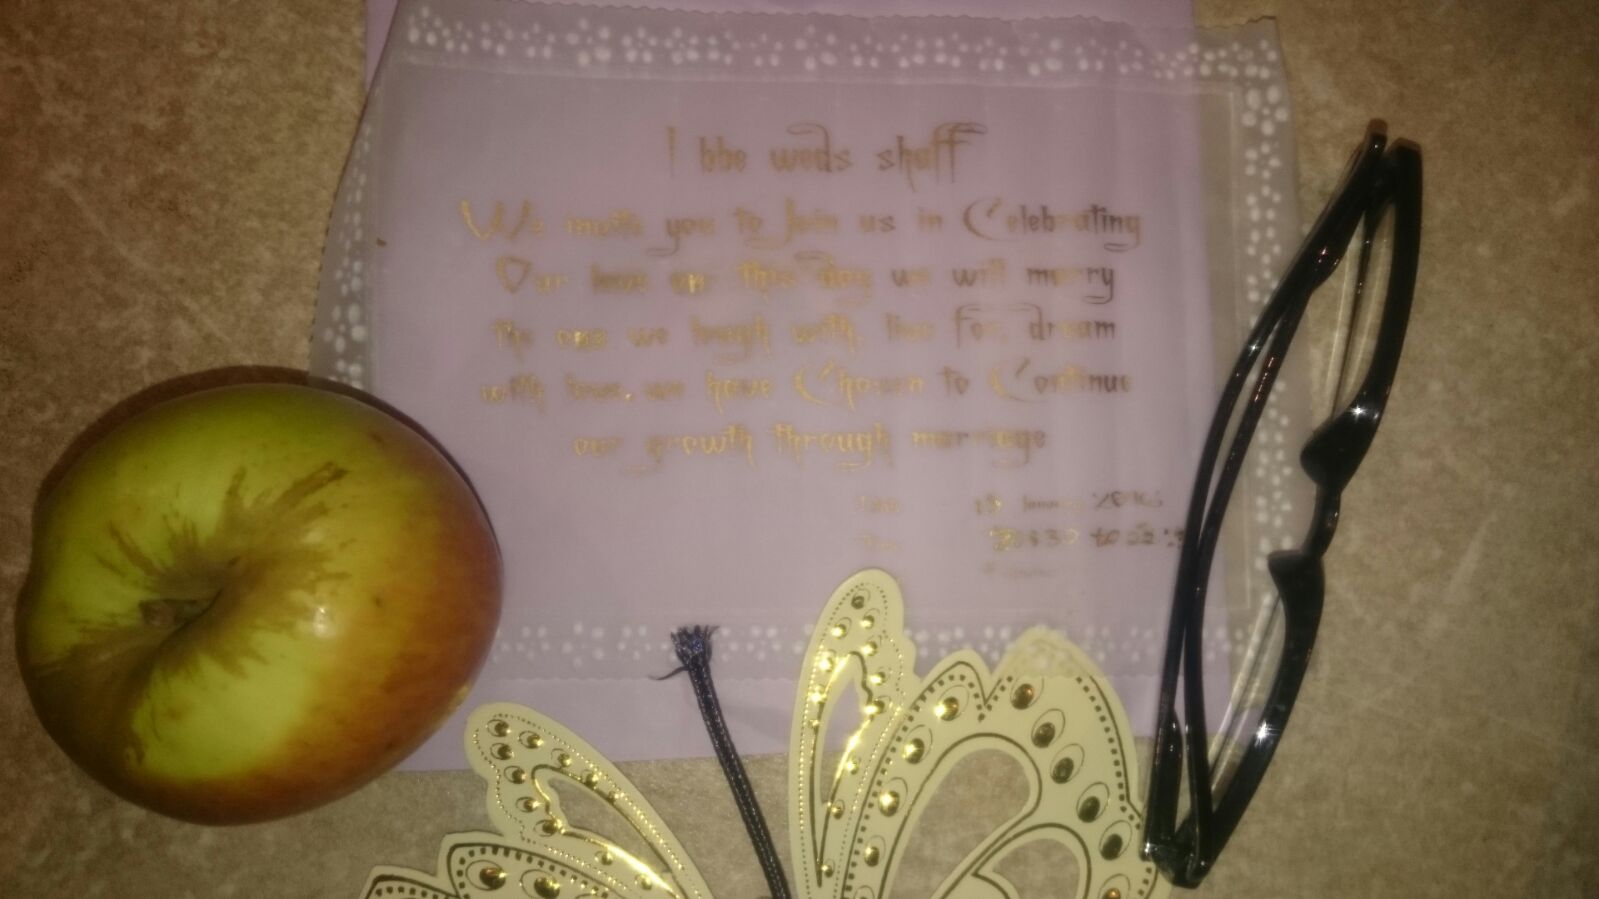 I bbe weds shaff
We invite you to Join us in Celebrating
Our love on this day we will marry
the one we laugh with, live for, dream
with love, we have Chosen to Continue
our growth through marriage
January
to